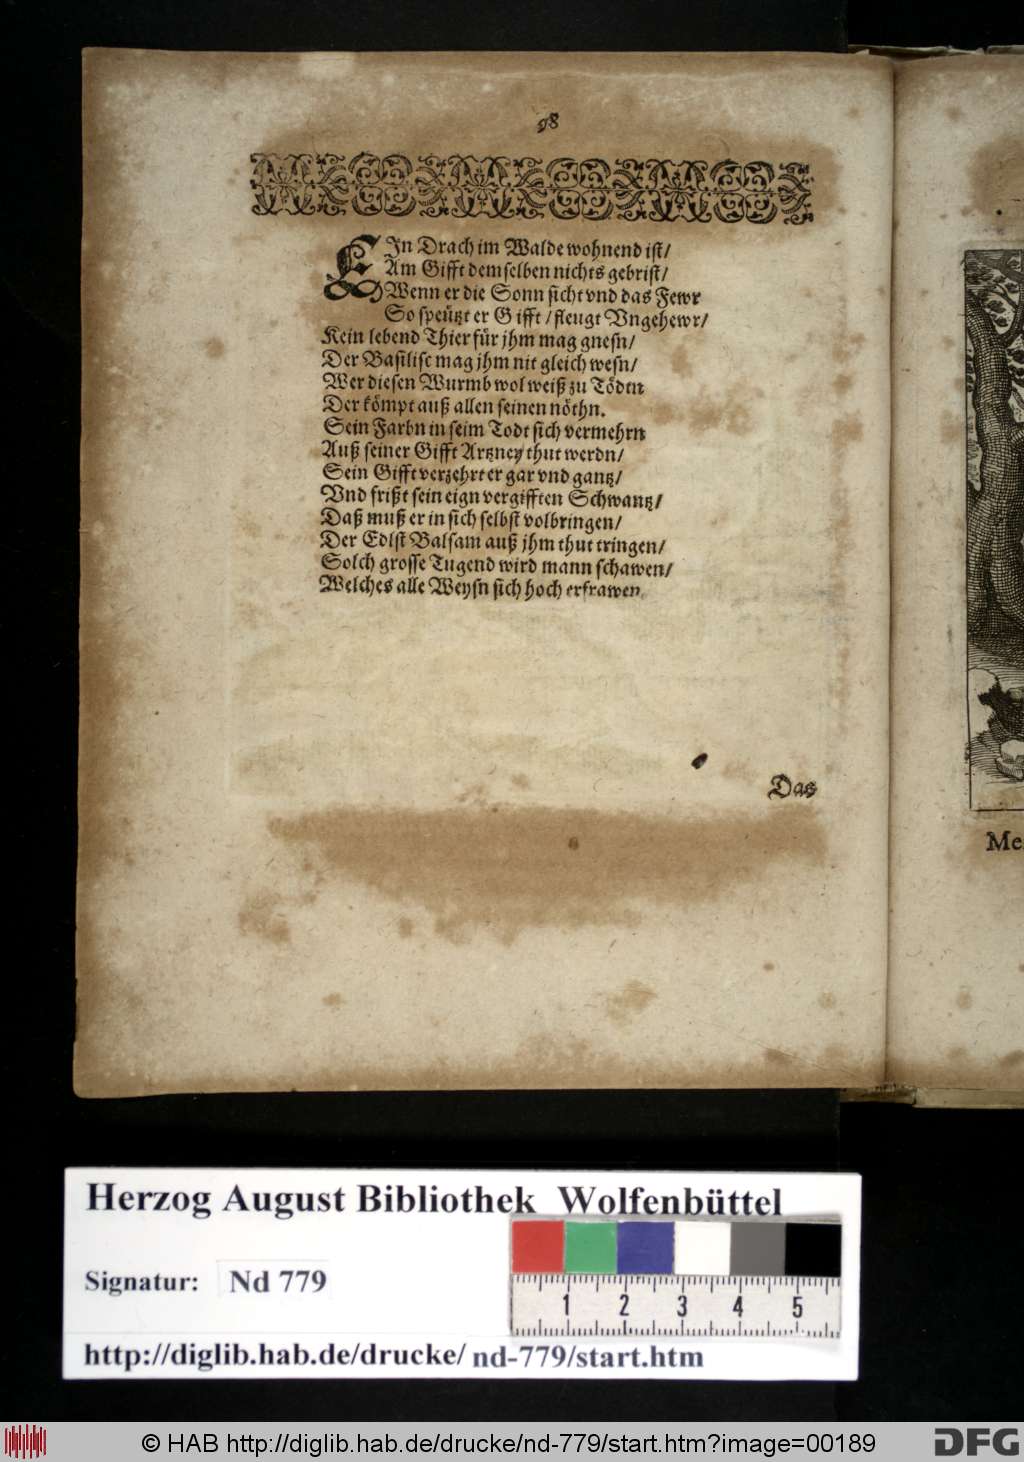 98
EIn Drach im Walde wohnend ist/
Am Gifft demselben nichts gebrist/
Wenn er die Sonn sicht vnd das Fewr
So speützt er Gifft / fleugt Vngehewr/
Kein lebend Thier für jhm mag gnesn/
Der Basilisc mag jhm nit gleich wesn/
Wer diesen Wurmb wol weiß zu Tödtn
Der kömpt auß allen seinen nöthn.
Sein Farbn in seim Todt sich vermehrn
Auß seiner Gifft Artzney thut werdn/
Sein Gifft verzehrt er gar vnd gantz/
Vnd frißt sein eign vergifften Schwantz/
Daß muß er in sich selbst volbringen/
Der Edlst Balsam auß jhm thut tringen/
Solch grosse Tugend wird mann schawen/
Welches alle Weysn sich hoch erfrawen.
Das
Me
Herzog August Bibliothek Wolfenbüttel
Signatur: Nd 779
1 2 3 4 5
http://diglib.hab.de/drucke/ nd-779/start.htm
© HAB http://diglib.hab.de/drucke/nd-779/start.htm?image=00189
DFG